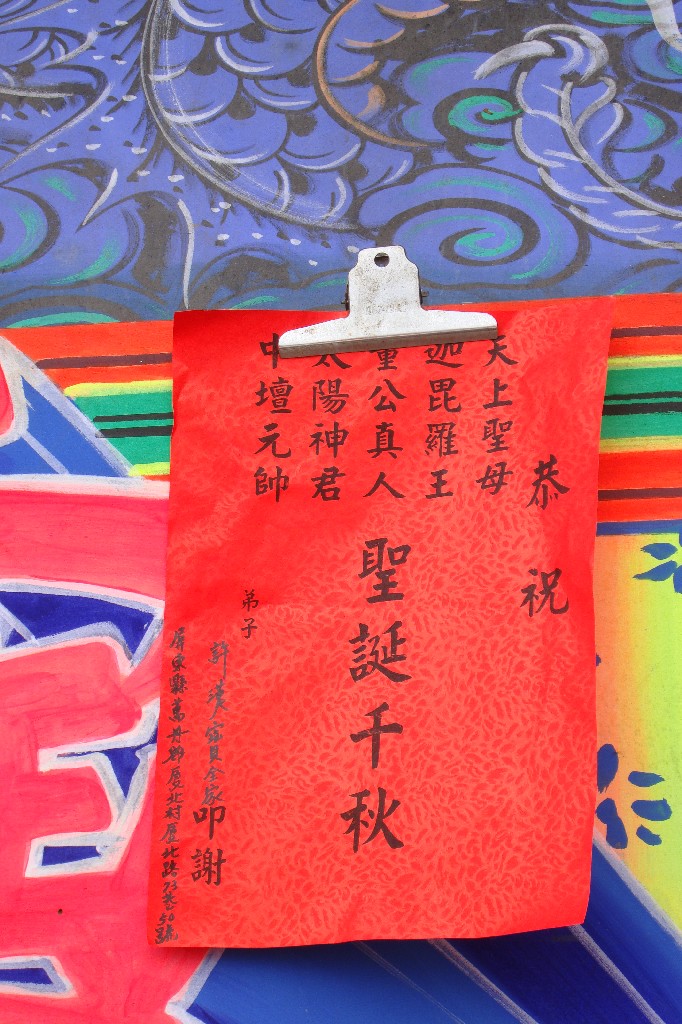 恭祝
天上聖母
迦毘羅王
童公真人
太陽神君
中壇元帥
聖誕千秋
弟子
許
寶全家
叩謝
屏東縣萬丹鄉廈北村廈北路73巷50號